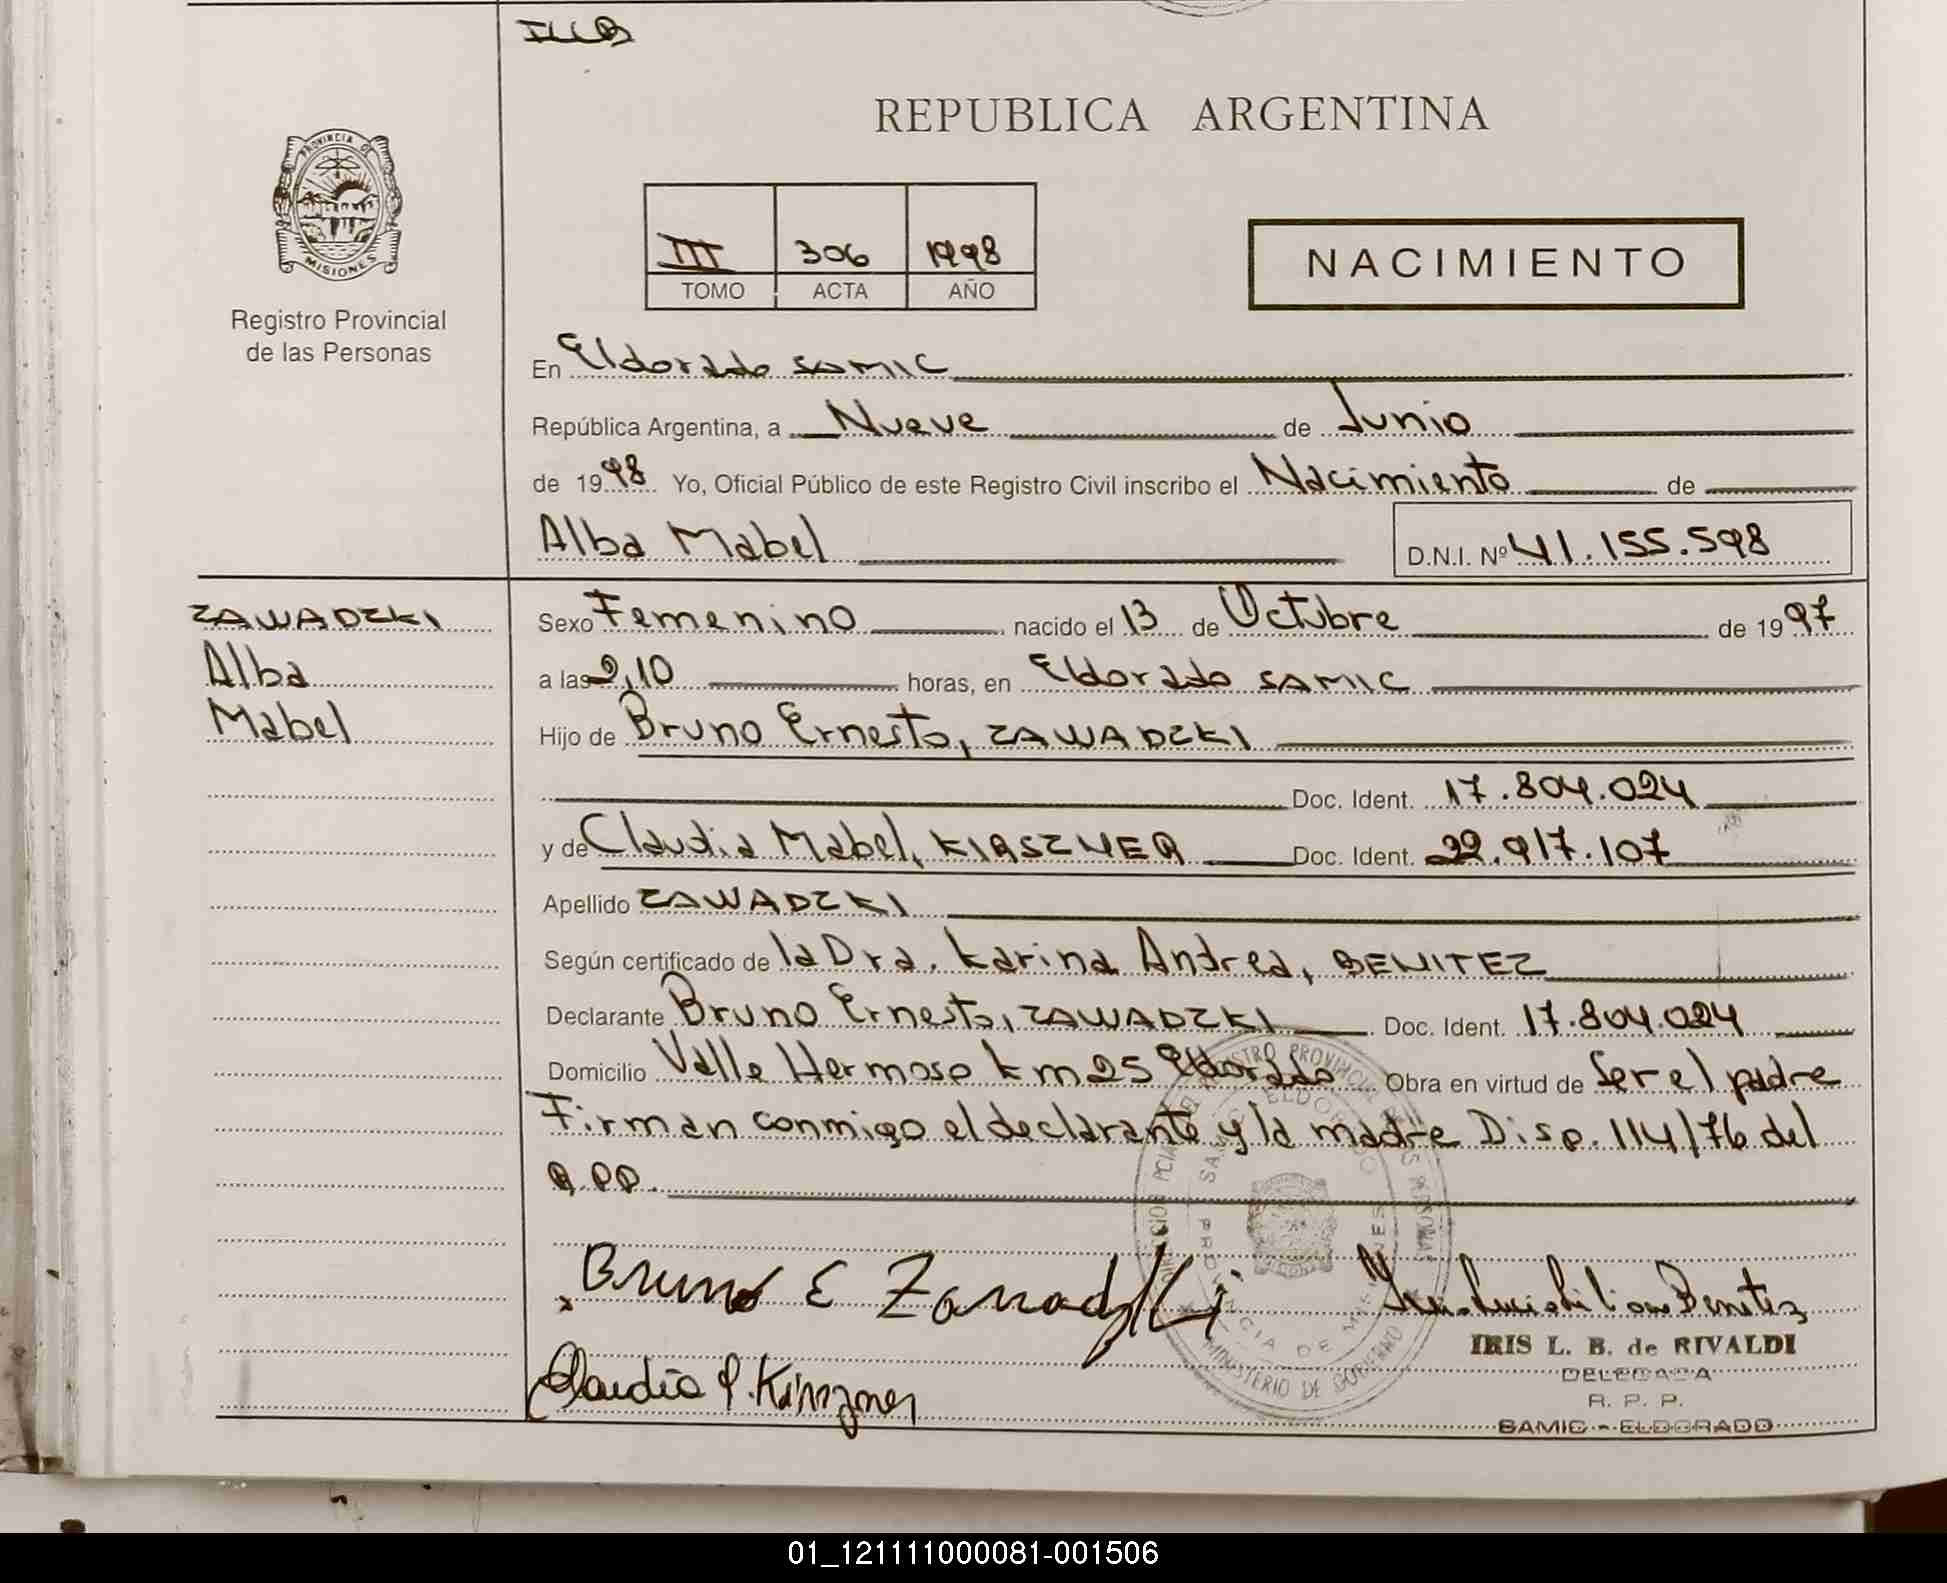 REPUBLICA ARGENTINA
PROVINCIA DE
MISIONES
Registro Provincial
de las Personas
III 306 1998
TOMO ACTA AÑO
NACIMIENTO
En Eldorado SAMIC
República Argentina, a Nueve de Junio
de 1998 Yo, Oficial Público de este Registro Civil inscribo el Nacimiento de
Alba Mabel D.N.I. Nº 41.155.598
ZAWADZKI
Alba
Mabel
Sexo Femenino nacido el 13 de Octubre de 1997
a las 2,10 horas, en Eldorado SAMIC
Hijo de Bruno Ernesto, ZAWADZKI
Doc. Ident. 17.804.024
y de Claudia Mabel, KIRSZNER Doc. Ident. 22.917.107
Apellido ZAWADZKI
Según certificado de la Dra. Karina Andrea, BENITEZ
Declarante Bruno Ernesto, ZAWADZKI Doc. Ident. 17.804.024
Domicilio Valle Hermoso km 25 Eldorado Obra en virtud de Ser el padre
Firman conmigo el declarante y la madre Disp. 114/76 del
R.P.P.
Bruno E Zawadzki
Claudia Kirszner
IRIS L. B. de RIVALDI
DELEGADA
R. P. P.
SAMIC - ELDORADO
01_121111000081-001506